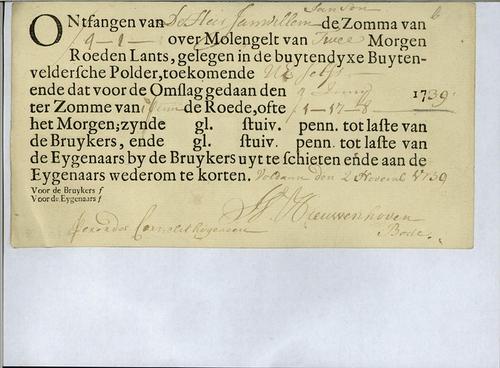 ONtfangen van De Heer Janwillem Janson de Zomma van
over Molengelt van Twee Morgen
Roeden Lants, gelegen in de buytendyxe Buyten-
veldersche Polder, toekomende
ende dat voor de Omslag gedaan den 1739
ter Zomme van de Roede, ofte 1-17-8
het Morgen; zynde gl. stuiv. penn. tot laste van
de Bruykers, ende gl. stuiv. penn. tot laste van
de Eygenaars by de Bruykers uyt te schieten eñde aan de
Eygenaars wederom te korten. Voldaan den 2 1739
Voor de Bruykers f
Voor de Eygenaars f
Nieuwenhoven
Bode.